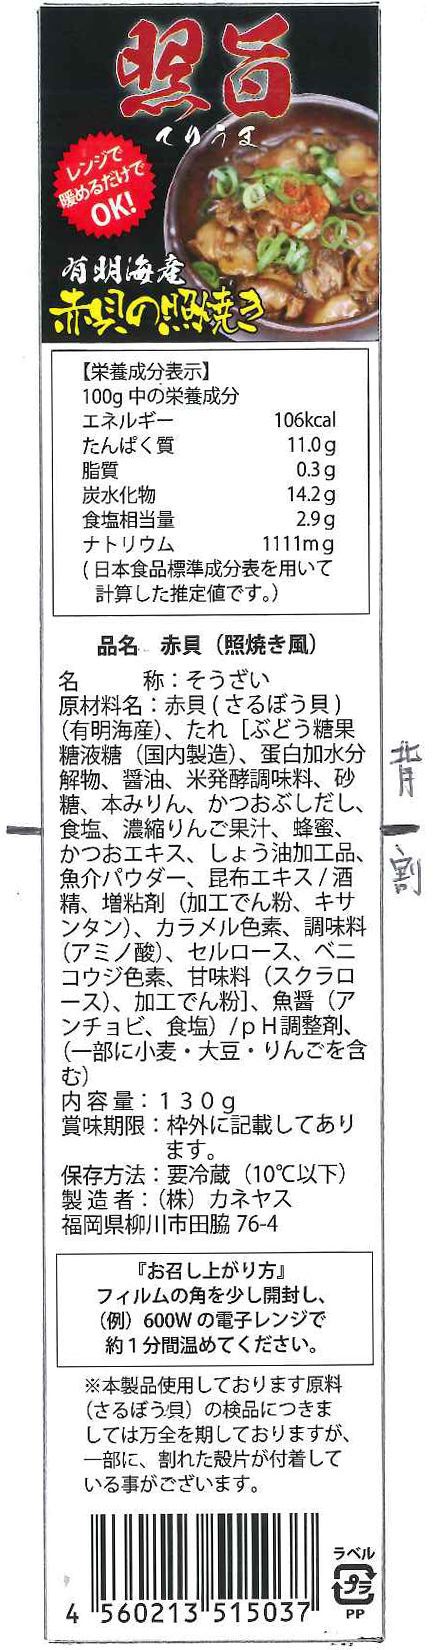 照旨
てりうま
レンジで
暖めるだけで
OK!
有明海産
赤貝の照焼き
【栄養成分表示】
100g 中の栄養成分
エネルギー 106kcal
たんぱく質 11.0g
脂質 0.3g
炭水化物 14.2g
食塩相当量 2.9g
ナトリウム 1111mg
(日本食品標準成分表を用いて
計算した推定値です。)
品名 赤貝（照焼き風）
名 称：そうざい
原材料名：赤貝(さるぼう貝)
（有明海産）、たれ［ぶどう糖果
糖液糖（国内製造）、蛋白加水分
解物、醤油、米発酵調味料、砂
糖、本みりん、かつおぶしだし、
食塩、濃縮りんご果汁、蜂蜜、
かつおエキス、しょう油加工品、
魚介パウダー、昆布エキス/酒
精、増粘剤（加工でん粉、キサ
ンタン）、カラメル色素、調味料
（アミノ酸）、セルロース、ベニ
コウジ色素、甘味料（スクラロ
ース）、加工でん粉］、魚醤（ア
ンチョビ、食塩）/pH調整剤、
（一部に小麦・大豆・りんごを含
む）
内容量：130g
賞味期限：枠外に記載してあり
ます。
保存方法：要冷蔵（10℃以下）
製造者：（株）カネヤス
福岡県柳川市田脇 76-4
背割
『お召し上がり方』
フィルムの角を少し開封し、
（例）600W の電子レンジで
約1分間温めてください。
※本製品使用しております原料
（さるぼう貝）の検品につきま
しては万全を期しておりますが、
一部に、割れた殻片が付着して
いる事がございます。
4 560213 515037
ラベル
プラ
PP